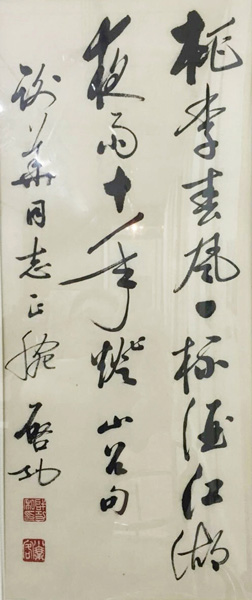 桃李春風一杯酒江湖
夜雨十年燈山谷句
華同志正腕啟功